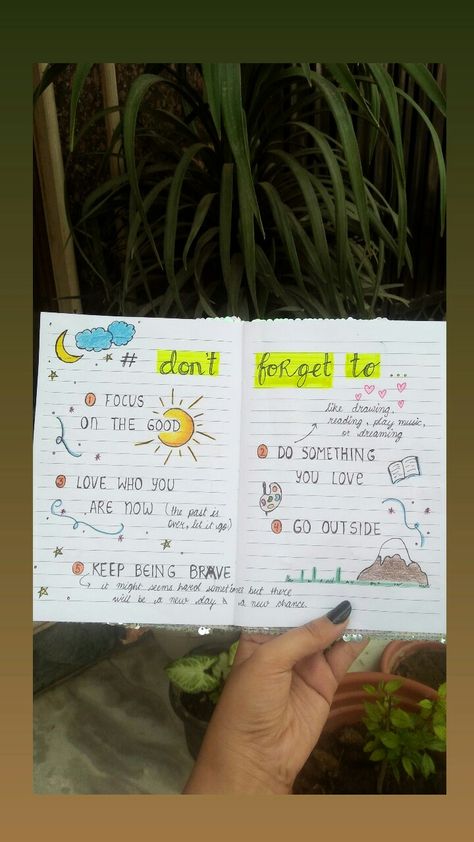 # don't forget to ...
① FOCUS
ON THE GOOD
like drawing,
reading, play music,
or dreaming
② DO SOMETHING
YOU LOVE
③ LOVE WHO YOU
ARE NOW (the past is
over, let it go)
④ GO OUTSIDE
⑤ KEEP BEING BRAVE
it might seems hard sometimes but there
will be a new day & a new chance.